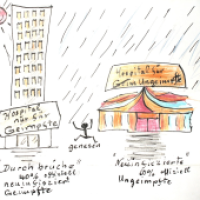 Hospital
nur für
Geimpfte
Hospital für
Ungeimpfte
genesen
"Durchbrüche"
40% offiziell
neuinfiziert
Geimpfte
"Neuinfizierte"
60% offiziell
Ungeimpfte